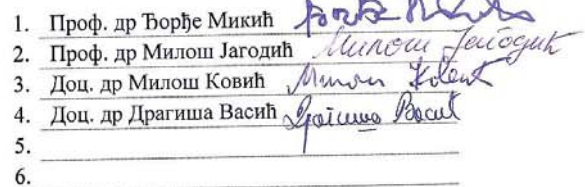 1. Проф. др Ђорђе Микић Ђорђе Микић
2. Проф. др Милош Јагодић Милош Јагодић
3. Доц. др Милош Ковић Милош Ковић
4. Доц. др Драгиша Васић Драгиша Васић
5.
6.